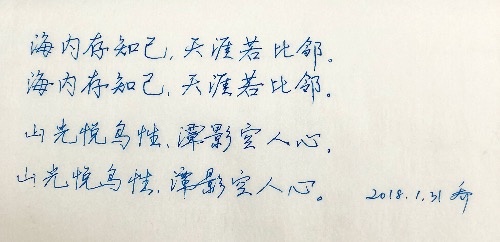 海内存知己,天涯若比邻。
海内存知己,天涯若比邻。
山光悦鸟性、潭影空人心。
山光悦鸟性、潭影空人心。
2018.1.31